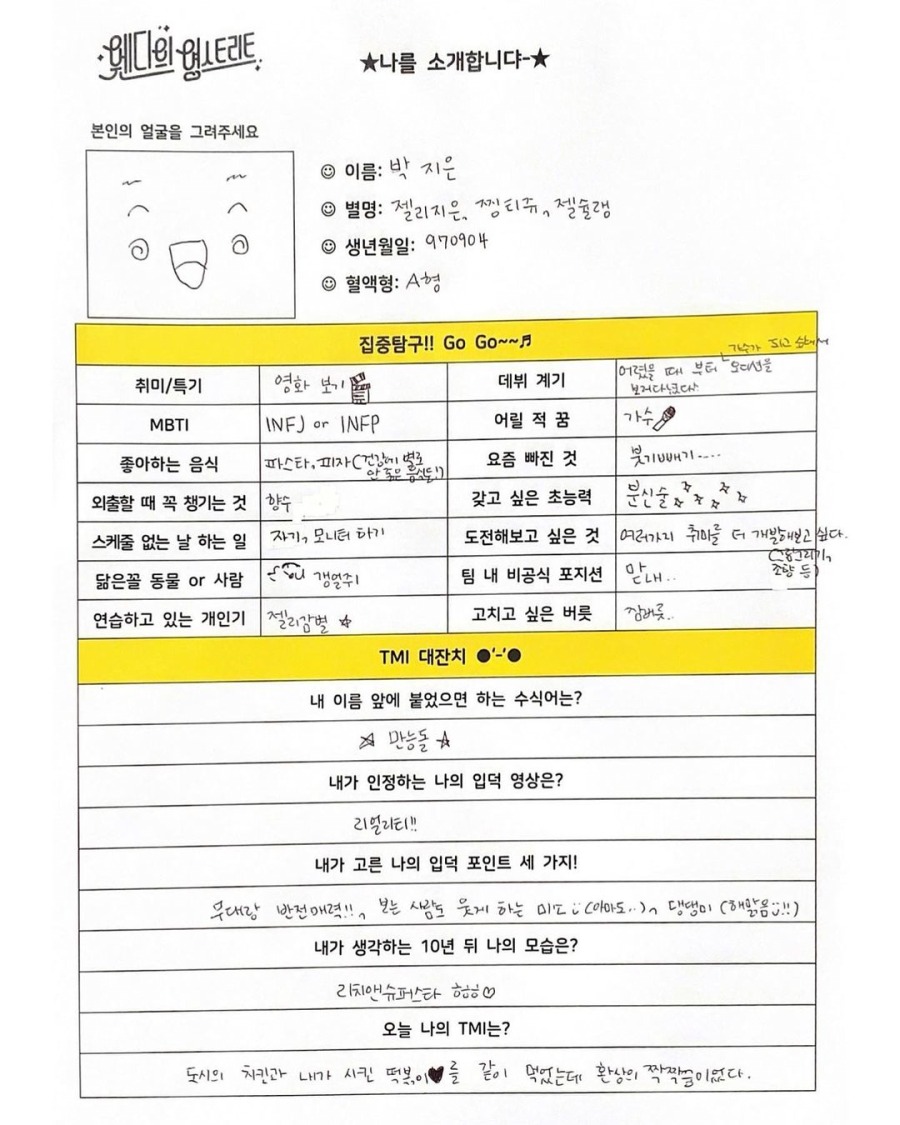 웬디의 영스트리트
★나를 소개합니댜-★
본인의 얼굴을 그려주세요
이름: 박 지은
별명: 젤리지은, 찜티쥬, 젤슐랭
생년월일: 970904
혈액형: A형
집중탐구!! Go Go~~♬
취미/특기 영화 보기
데뷔 계기 어렸을 때 부터 가수가 되고 싶어서 오디션을
보러다녔다!
MBTI INFJ or INFP
어릴 적 꿈 가수
좋아하는 음식 파스타, 피자 (건강에 별로
안 좋은 음식들!)
요즘 빠진 것 붓기빼기....
외출할 때 꼭 챙기는 것 향수
갖고 싶은 초능력 분신술
스케줄 없는 날 하는 일 자기, 모니터 하기
도전해보고 싶은 것 여러가지 취미를 더 개발해보고 싶다.
(그림그리기,
조향 등)
닮은꼴 동물 or 사람 갱얼쥐
팀 내 비공식 포지션 맏내..
연습하고 있는 개인기 젤리감별 ☆
고치고 싶은 버릇 잠버릇..
TMI 대잔치 ●'-'●
내 이름 앞에 붙었으면 하는 수식어는?
☆ 만능돌 ☆
내가 인정하는 나의 입덕 영상은?
리얼리티!!
내가 고른 나의 입덕 포인트 세 가지!
무대랑 반전매력!!, 보는 사람도 웃게 하는 미소 (아마도..), 댕댕미 (해맑음!!)
내가 생각하는 10년 뒤 나의 모습은?
리치앤슈퍼스타 ㅎㅎㅎ♡
오늘 나의 TMI는?
도시의 치킨과 내가 시킨 떡볶이♥를 같이 먹었는데 환상의 짝짝꿍이었다.